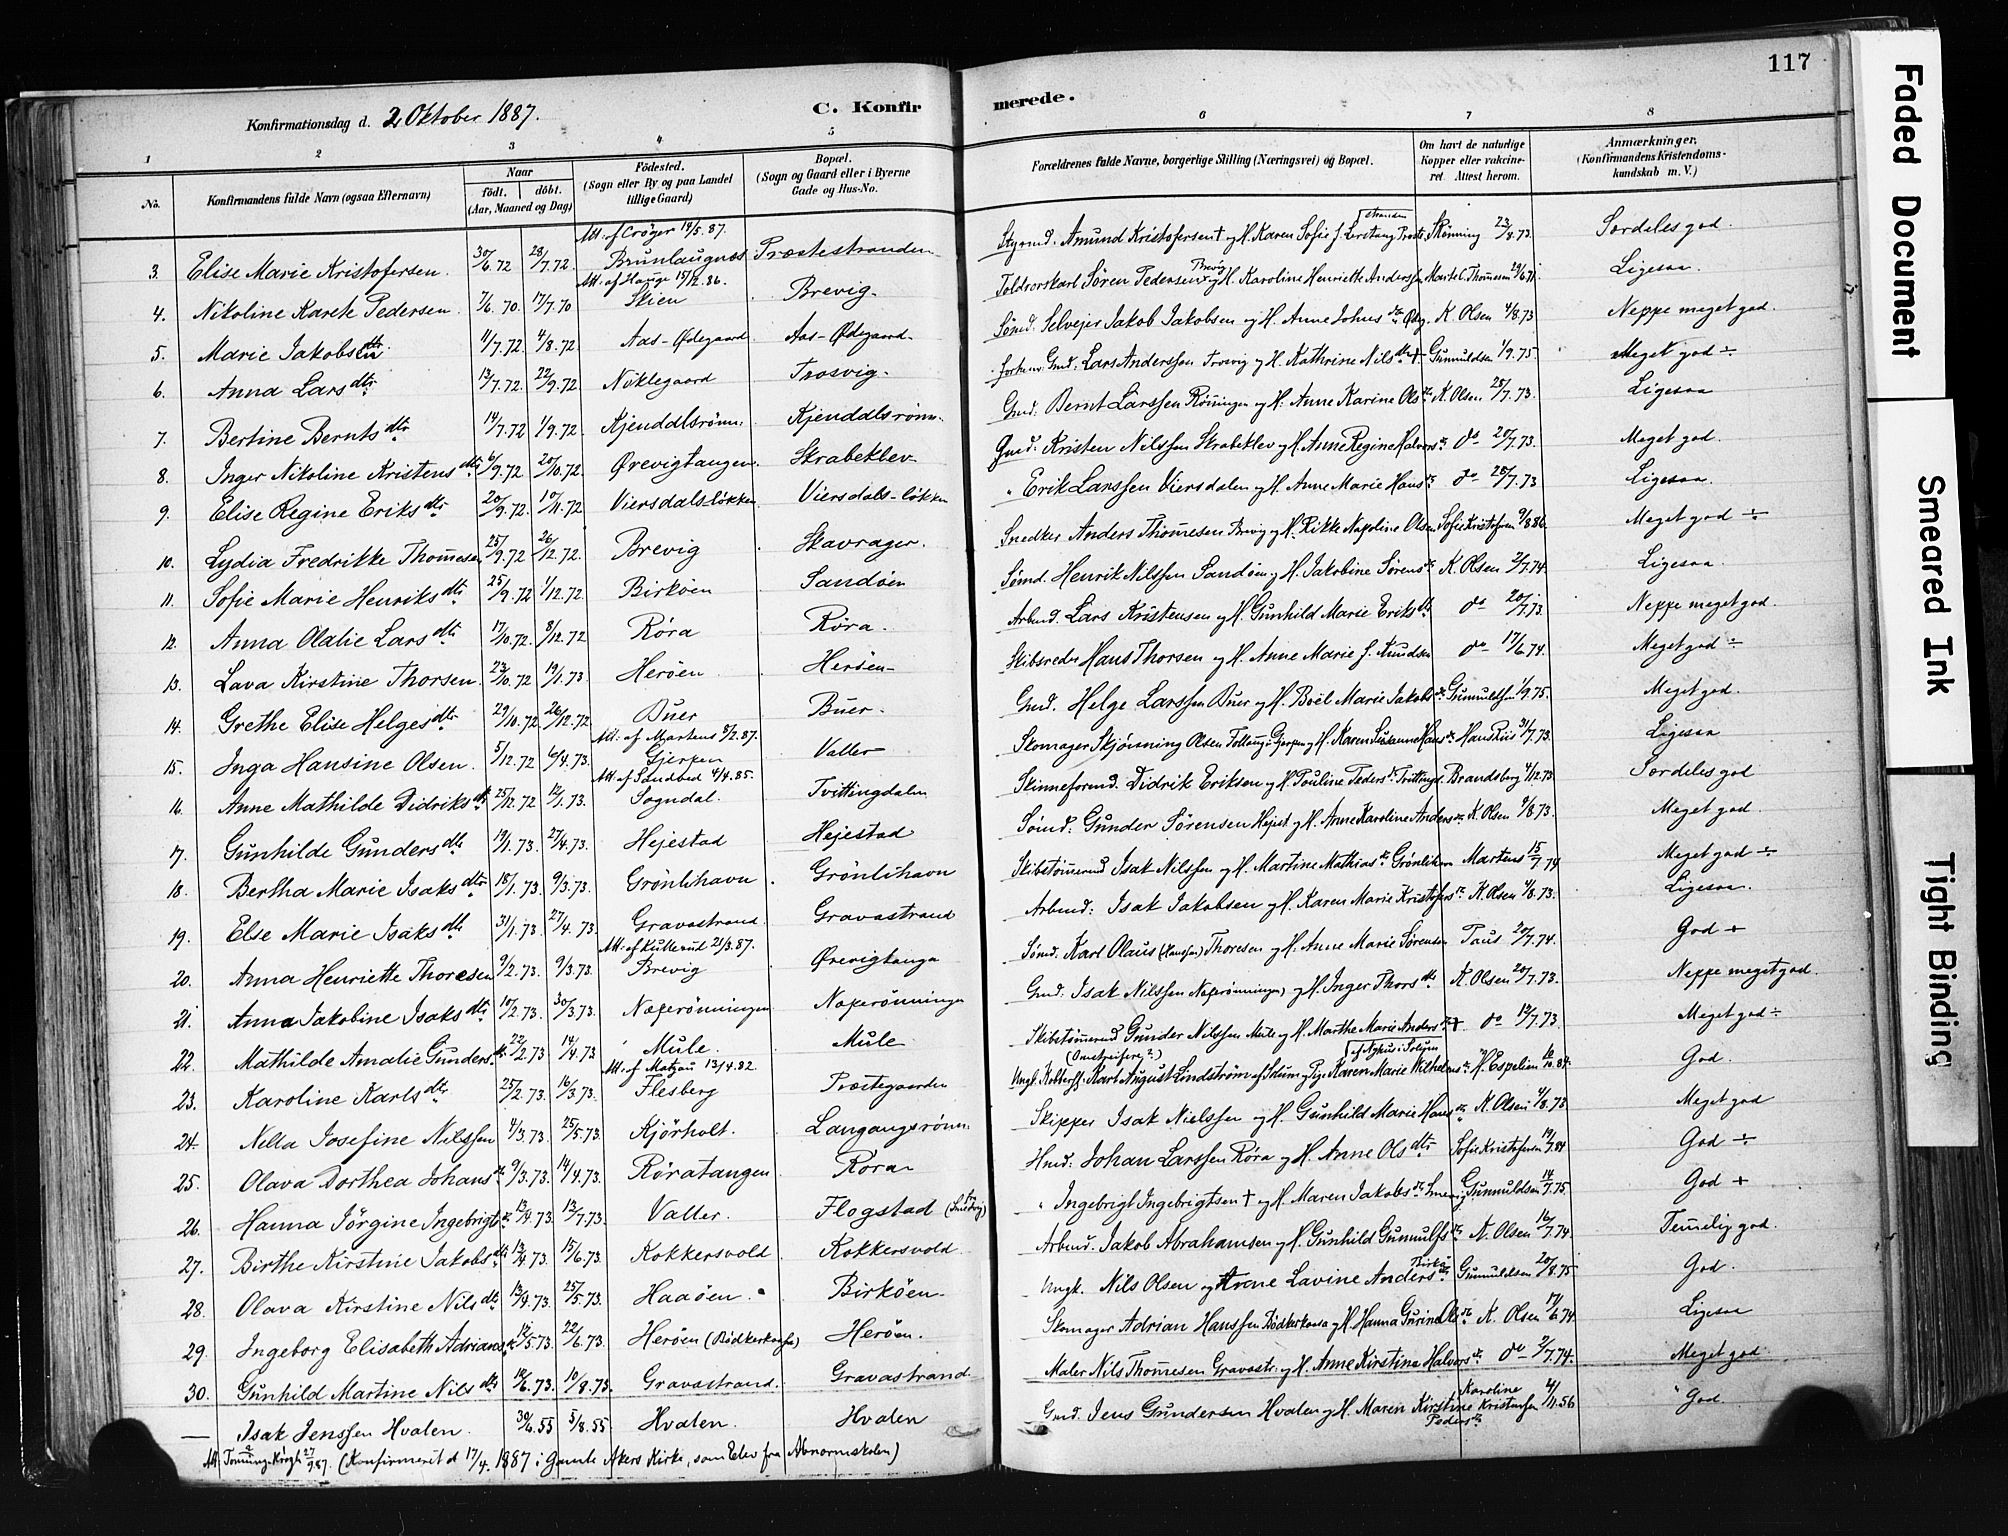 117
Konfirmationsdag d. 2 Oktober 1887.
C. Konfirmerede.
1 2 3 4 5 6 7 8
No. Konfirmandens fulde Navn (ogsaa Efternavn) Naar født. døbt. (Aar, Maaned og Dag) Fødested. (Sogn eller By og paa Landet tillige Gaard) Bopæl. (Sogn og Gaard eller i Byerne Gade og Hus-No. Forældrenes fulde Navne, borgerlige Stilling (Næringsvei) og Bopæl. Om havt de naturlige Kopper eller vakcineret. Attest herom. Anmærkninger. (Konfirmandens Kristendomskundskab m. V.)
3. Elise Marie Kristofersen. 30/6.72 28/7.72 Att. af Crøger 14/5.87. Brunlaugnæs Præstestranden Styrmd. Amund Kristofersen † og H. Karen Sofie Skønning 23/4.73 Særdeles god.
4. Nikoline Karete Pedersen 7/6.70 17/7.70 Att. af Hauge 15/12.86. Skien Brevig. Toldrorskarl Sören Pedersen Brevig og H. Karoline Henriette Anderssen Ligesaa.
5. Marie Jakobsdtr 11/7.72 4/8.72 Aas-Ødegaard Aas-Ødegaard Sömd. Selveier Jakob Jakobsen og H. Anne Johns dtr Ødeg. K. Olsen 4/8.73 Neppe meget god.
6. Anna Lars dtr 13/7.72 22/9.72 Nøklegaard Trosvig. Lars Anderssen Trosvig og H. Kathrine Nils dtr † Gunnuldsen 1/9.75. Meget god ÷
7. Bertine Bernts dtr 14/7.72 1/9.72 Kjenddlsrönn. Kjenddlsrönn. Gmd. Bernt Larssen Rönningen og H. Anne Karine Ols dtr K. Olsen 28/7.73. Ligesaa
8. Inger Nikoline Kristens dtr 6/9.72 20/10.72 Ørevigtangen. Skrabeklev Gmd. Kristen Nilssen Skrabeklev og H. Anne Regine Halvors dtr do 20/7.73. Meget god.
9. Elise Regine Eriks dtr 20/9.72 10/11.72 Viersdalsløkken Viersdals-løkken " Erik Larssen Viersdalen og H. Anne Marie Hans dtr do 28/7.73 Ligesaa.
10. Lydia Fredrikke Thom̄esen 25/9.72 26/12.72. Brevig Skavrager. Snedker Anders Thom̄esen Brevig og H. Rikke Napoline Olsen Sofie Kristofersen 9/8.86. Meget god ÷
11. Sofie Marie Henriks dtr 25/9.72 1/12.72 Birköen Sandöen Sömd. Henrik Nilssen Sandöen og H. Jakobine Sørens dtr K. Olsen 2/7.74. Ligesaa.
12. Anna Olalie Lars dtr 17/10.72 8/12.72 Røra Røra. Arbmd. Lars Kristensen og H. Gunhild Marie Eriks dtr do 20/7.73 Neppe meget god.
13. Lava Kirstine Thorsen. 23/10.72 19/1.73 Heröen Heröen Skibsreder Hans Thorsen og H. Anne Marie f. Knudsen do 17/6.74. Meget god ÷
14. Grethe Elise Helges dtr 29/10.72 26/12.72 Buer Buer. Gmd. Helge Larssen Buer og H. Boel Marie Jakobs dtr Gunnuldsen 1/9.75. Meget god.
15. Inga Hansine Olsen. 5/12.72 6/4.73. Att. af Martens 8/2.87. Gjerpen Valler Skomager Skjønning Olsen i Gjerpen og H. Karen Susanne Hans dtr Hans Riis 31/7.73. Ligesaa
16. Anne Mathilde Didriks dtr 25/12.72 12/1.73. Att. af Sandbed 4/4.85. Sogndal. Tvittingdalen Skinneformd. Didrik Eriksen og H. Pouline Peders dtr Brandsberg 4/12.73 Særdeles god
17. Gunhilde Gunders dtr 19/1.73. 27/4.73. Hejestad Hejestad Sömd. Gunder Sörensen Hejest. og H. Anne Karoline Anders dtr K. Olsen 9/8.73. Meget god
18. Bertha Marie Isaks dtr 18/1.73. 9/3.73. Grönlihavn Grönlihavn Skibstömmermd Isak Nilssen og H. Martine Mathias dtr Grönlihavn Martens 15/7.74 Meget god ÷
19. Else Marie Isaks dtr 31/1.73. 27/4.73 Gravastrand Gravastrand Arbmd: Isak Jakobsen og H. Karen Marie Kristofers dtr K. Olsen 4/8.73. Ligesaa.
20. Anna Henriette Thoresen 9/2.73. 9/3.73. Att. af Kullerud 21/3.87. Brevig Ørevigtangen Sömd. Karl Olaus (Hanssen) Thoresen og H. Anne Marie Sørensen Taus 20/7.74. God +
21. Anna Jakobine Isaks dtr 10/2.73. 30/3.73. Naperönningen Naperönningen Gmd. Isak Nilssen Naperönningen og H. Inger Thors dtr K. Olsen 20/7.73. Neppe meget god.
22. Mathilde Amalie Gunders dtr 22/2.73 14/4.73 Mule. Mule Skibstömmermd Gunder Nilssen Mule og H. Marthe Marie Anders dtr † do 12/7.73. Meget god ÷
23. Karoline Karls dtr 25/2.73. 16/3.73. Att. af Matzau 13/4.82. Flesberg Præstegaarden Karl August Lindström af Solum og Pige Karen Marie Wilhelms dtr H. Espelien God.
24. Nella Josefine Nilssen 4/3.73. 25/5.73. Kjörholt. Langangsrönn. Skipper Isak Nielssen og H. Gunhild Marie Hans dtr K. Olsen 4/8.73 Meget god
25. Olava Dorthea Johans dtr 9/3.73. 14/4.73. Røratangen Røra Hmd: Johan Larssen Røra og H. Anne Ols dtr Sofie Kristofersen God ÷
26. Hanna Jörgine Ingebrigts dtr 13/4.73. 13/7.73. Valler. Flogstad " Ingebrigt Ingebrigtsen † og H. Maren Jakobs dtr Gunnuldsen 14/7.75. God +
27. Birthe Kirstine Jakobs dtr 13/4.73. 15/6.73. Kokkersvold Kokkersvold Arbmd. Jakob Abrahamsen og H. Gunhild Gunnulfs dtr N. Olsen 16/7.74. Tem̄elig god.
28. Olava Kirstine Nils dtr 13/4.73. 25/5.73. Haaöen. Birköen Ungk. Nils Olsen og Anne Lavine Anders dtr Birkö Gunnuldsen 20/8.75 God.
29. Ingeborg Elisabeth Adrians dtr 12/5.73 22/6.73. Heröen (Bödkerkaasa) Heröen. Skomager Adrian Hanssen Bödkerkaasa og H. Hanna Gurine Ols dtr K. Olsen 17/6.74 Ligesaa
30. Gunhild Martine Nils dtr 12/6.73. 10/8.73. Gravastrand. Gravastrand Maler Nils Thom̄esen Gravastr. og H. Anne Kirstine Halvors dtr do 2/7.74. Meget god
— Isak Jenssen Hvalen. 30/6.55 5/8.55 Hvalen. Hvalen Gmd. Jens Gundersen Hvalen og H. Maren Kirstine Peders dtr Karoline Kristensen 4/11.56 God.
Att. 27/9.87. (Konfirmeret d 17/4. 1887 i Gamle Akers Kirke, som Elev fra Abnormskolen)
Faded Document
Smeared Ink
Tight Binding